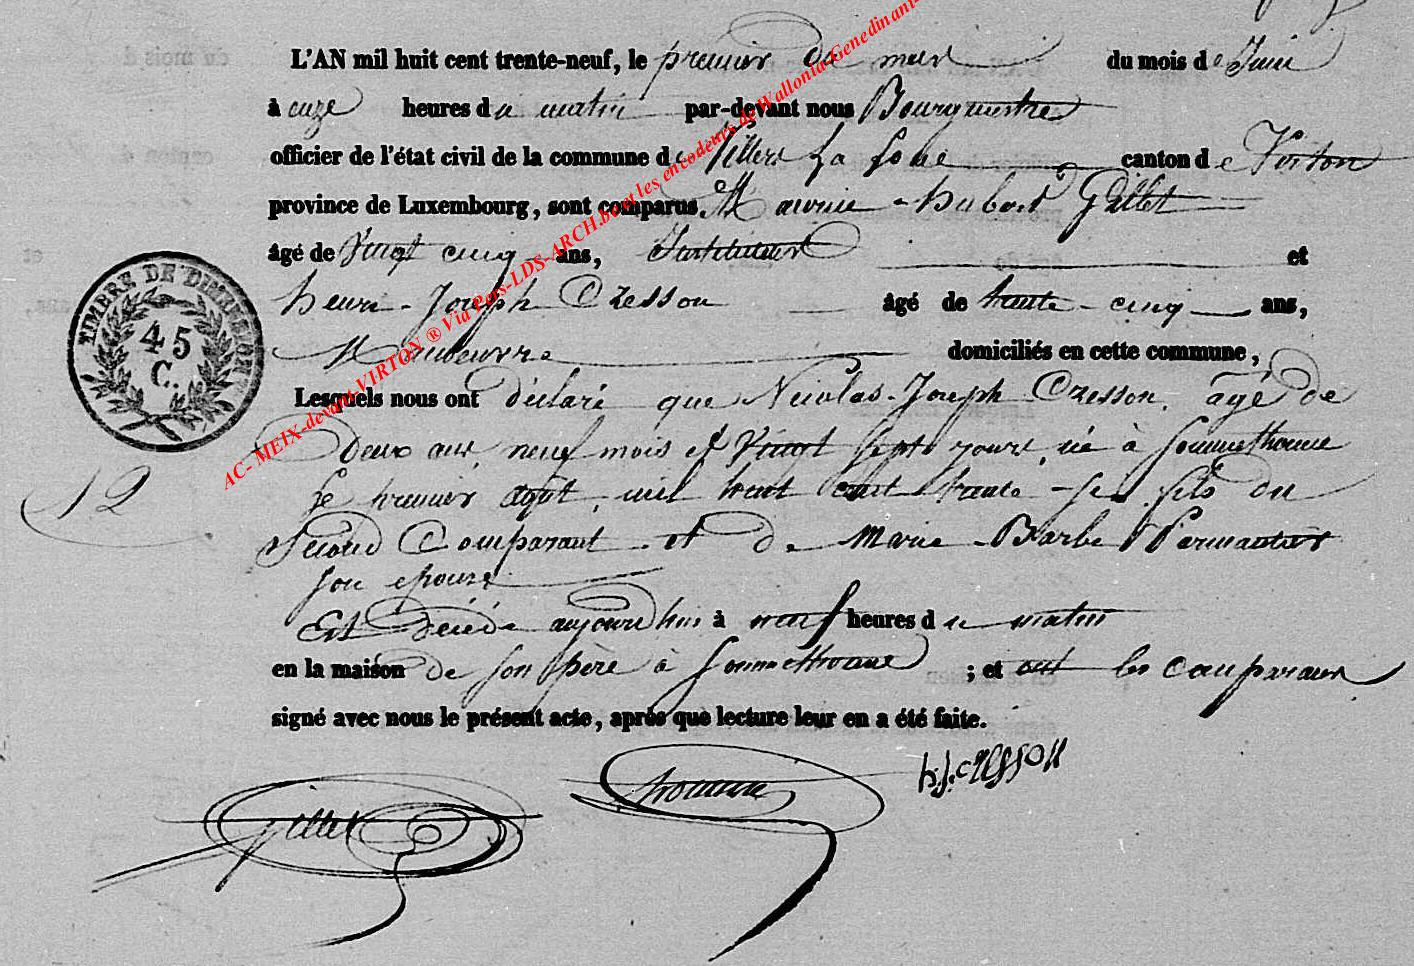 L'AN mil huit cent trente-neuf, le premier du mois du mois de Juin
à onze heures du matin par-devant nous Bourgmestre
officier de l'état civil de la commune de Villers la Loue canton de Virton
province de Luxembourg, sont comparus Hubert Gillet
âgé de Vingt cinq ans, Instituteur et
henri-Joseph Cresson âgé de trente-cinq ans,
Manoeuvre domiciliés en cette commune,
Lesquels nous ont déclaré que Nicolas-Joseph Cresson, agé de
Deux ans, neuf mois et Vingt sept jours, né à Sommethonne
le premier août mil huit cent trente-six fils du
Second Comparant et de Marie-Barbe
son epouse
Est décédé aujourd'hui à neuf heures du matin
en la maison de son père à Sommethonne ; et ont les comparans
signé avec nous le présent acte, après que lecture leur en a été faite.
Gillet
h.j.cresson
TIMBRE DE DIMENSION
45
C.
12
AC- MEIX-devant-VIRTON ® Via Pers-LDS-ARCH.be et les encodeurs de Wallonia-Genedinant